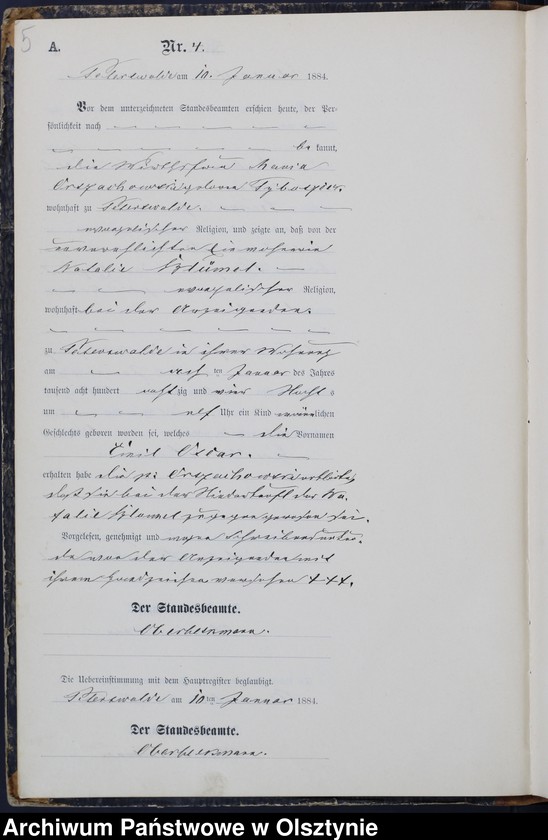 5
A. Nr. 4.
Peterswalde am 10. Januar 1884.
Vor dem unterzeichneten Standesbeamten erschien heute, der Per-
sönlichkeit nach
be kannt,
die Wirthsfrau Maria
geborne
wohnhaft zu Peterswalde.
evangelischer Religion, und zeigte an, daß von der
unverehelichten Einwohnerin
Natalie
evangelischer Religion,
wohnhaft bei der Anzeigenden.
zu Peterswalde in ihrer Wohnung
am acht ten Januar des Jahres
tausend acht hundert achtzig und vier Nachts
um elf Uhr ein Kind männlichen
Geschlechts geboren worden sei, welches die Vornamen
Emil Oscar.
erhalten habe die
daß sie bei der Niederkunft der Na-
talie zugegen gewesen sei.
Vorgelesen, genehmigt und wegen Schreibensunkun-
de von der Anzeigenden mit
ihrem Handzeichen versehen +++.
Der Standesbeamte.
Die Uebereinstimmung mit dem Hauptregister beglaubigt.
Peterswalde am 10ten Januar 1884.
Der Standesbeamte.
Archiwum Państwowe w Olsztynie